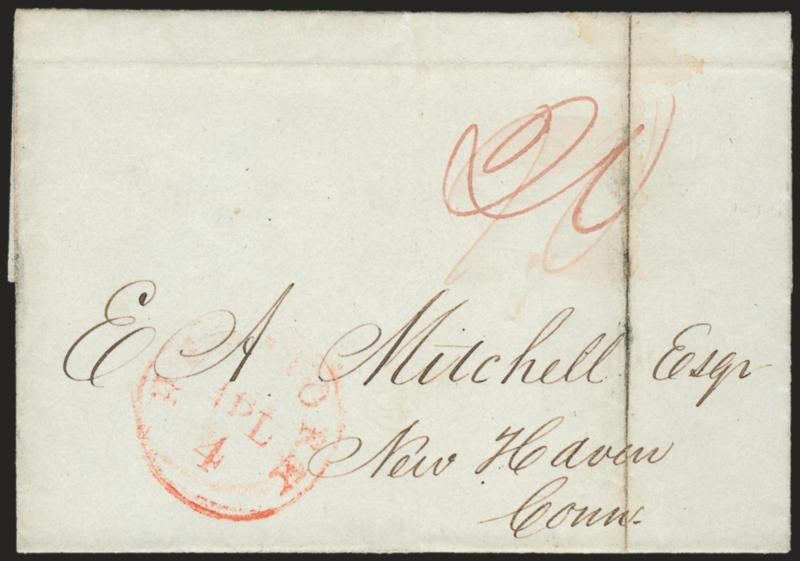 20
E A Mitchell Esqr
New Haven
Conn.
NEW-YORK
APL
4